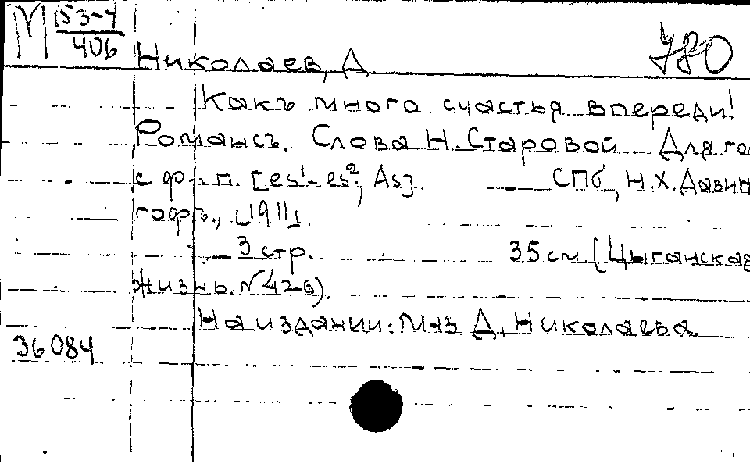 М 153-4/406
780
Николаев, Д
Какъ много счастья впереди!
Романсъ. Слова Н. Старовой Для го
с ф.-п. [es¹-es², As]. СПб, Н.Х. Давин
гофъ, [1911]
3 стр. 35 см. (Цыганская
жизнь. N 426).
На издании: муз Д. Николаева
36084